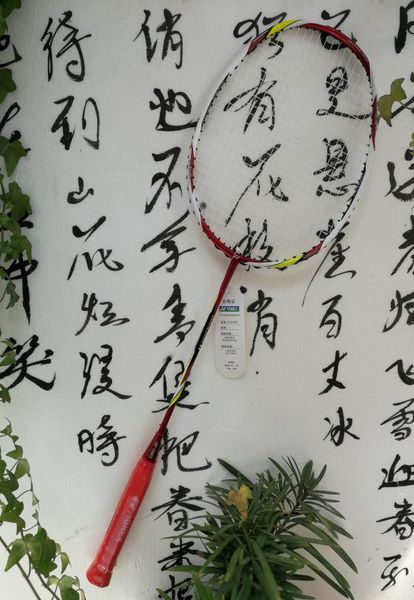 雨送春归飞雪迎春到
已是悬崖百丈冰
犹有花枝俏
俏也不争春只把春来报
待到山花烂漫时
中笑
合格证
YONEX